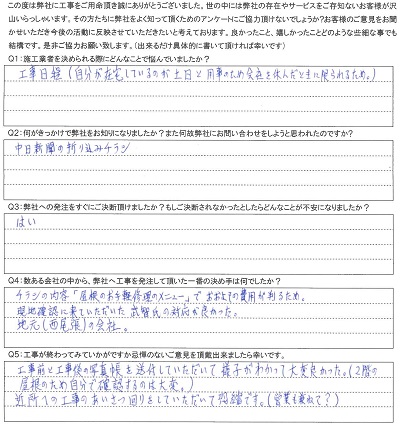 この度は弊社に工事をご用命頂き誠にありがとうございました。世の中には弊社の存在やサービスをご存知ないお客様が沢
山いらっしゃいます。その方たちに弊社をよく知って頂くためのアンケートにご協力頂けないでしょうか?お客様のご意見をお聞
かせいただき今後の活動に反映させていただきたいと考えております。良かったこと、嬉しかったことどのような些細な事でも
結構です。是非ご協力お願い致します。(出来るだけ具体的に書いて頂ければ幸いです)
Q1:施工業者を決められる際にどんなことで悩んでいましたか?
工事日程(自分が在宅しているのが土日と用事のため会社を休んだときに限られるため。)
Q2:何がきっかけで弊社をお知りになりましたか?また何故弊社にお問い合わせをしようと思われたのですか?
中日新聞の折り込みチラシ
Q3:弊社への発注をすぐにご決断頂けましたか?もしご決断されなかったとしたらどんなことが不安になりましたか?
はい
Q4:数ある会社の中から、弊社へ工事を発注して頂いた一番の決め手は何でしたか?
チラシの内容「屋根のお手軽修理のメニュー」でおおよその費用が判るため。
現地確認に来ていただいた武智氏の対応が良かった。
地元(西尾張)の会社。
Q5:工事が終わってみていかがですか忌憚のないご意見を頂戴出来ましたら幸いです。
工事前と工事後の写真帳を送付していただいて様子がわかって大変良かった。(2階の
屋根のため自分で確認するのは大変。)
近所への工事のあいさつ回りをしていただいて恐縮です。(営業も兼ねて?)